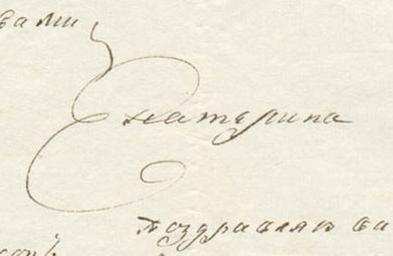 вами
Екатерина
поздравляю ва